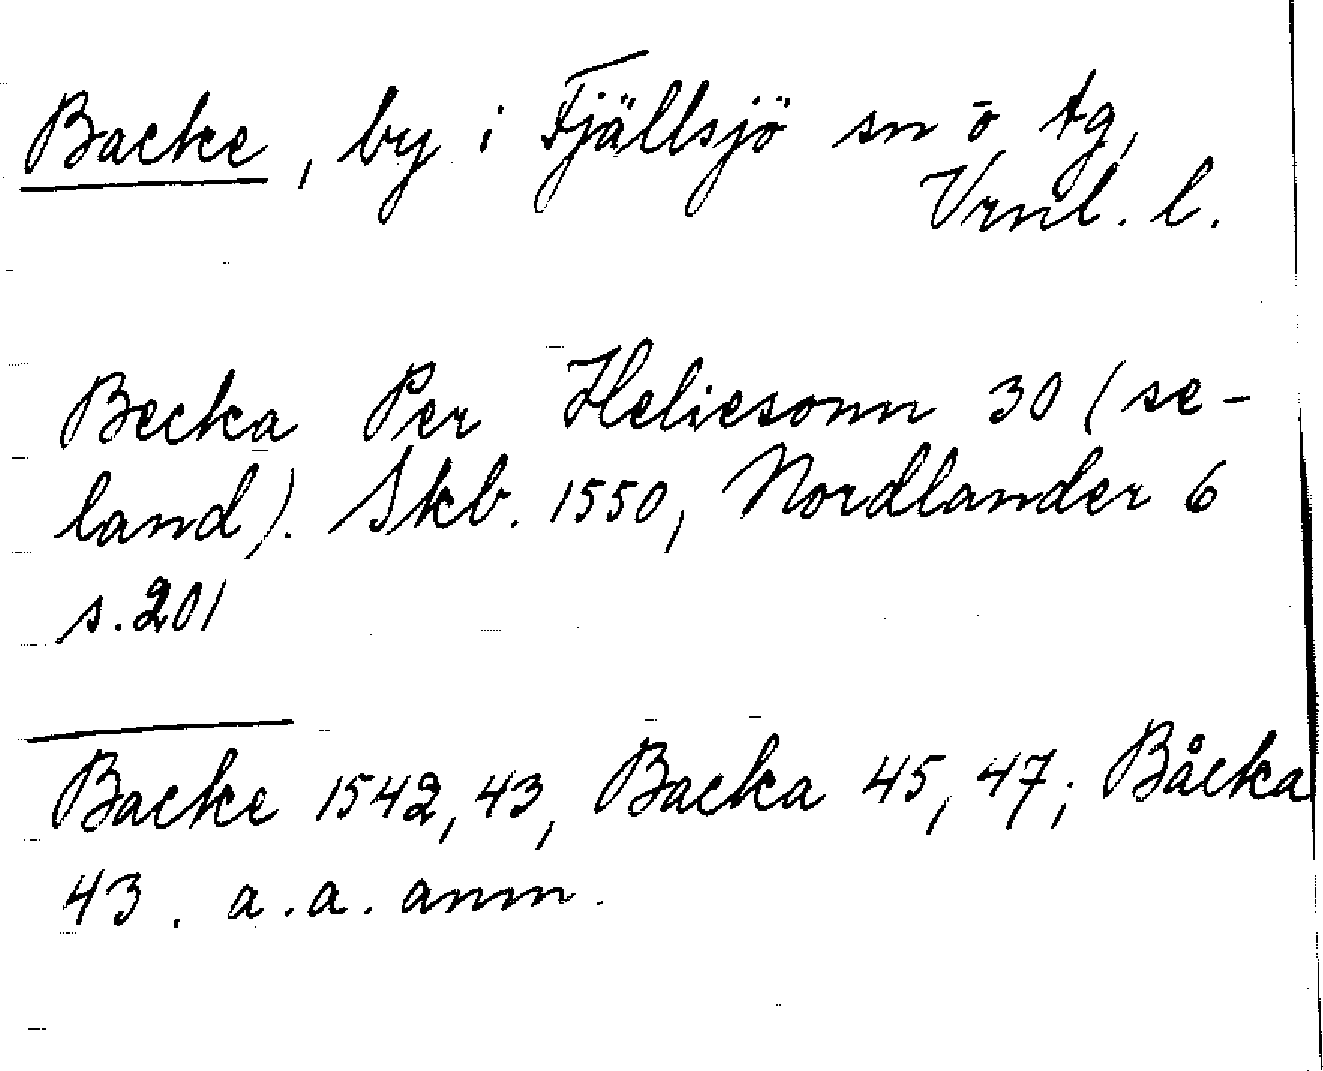 Backe, by i Fjällsjö sn o tg,
Vrnl. l.
Becka Per Heliesonn 30 (se-
land). Skb. 1550, Nordlander 6
s. 201
Backe 1542, 43, Backa 45, 47; Båcka
43. a. a. anm.